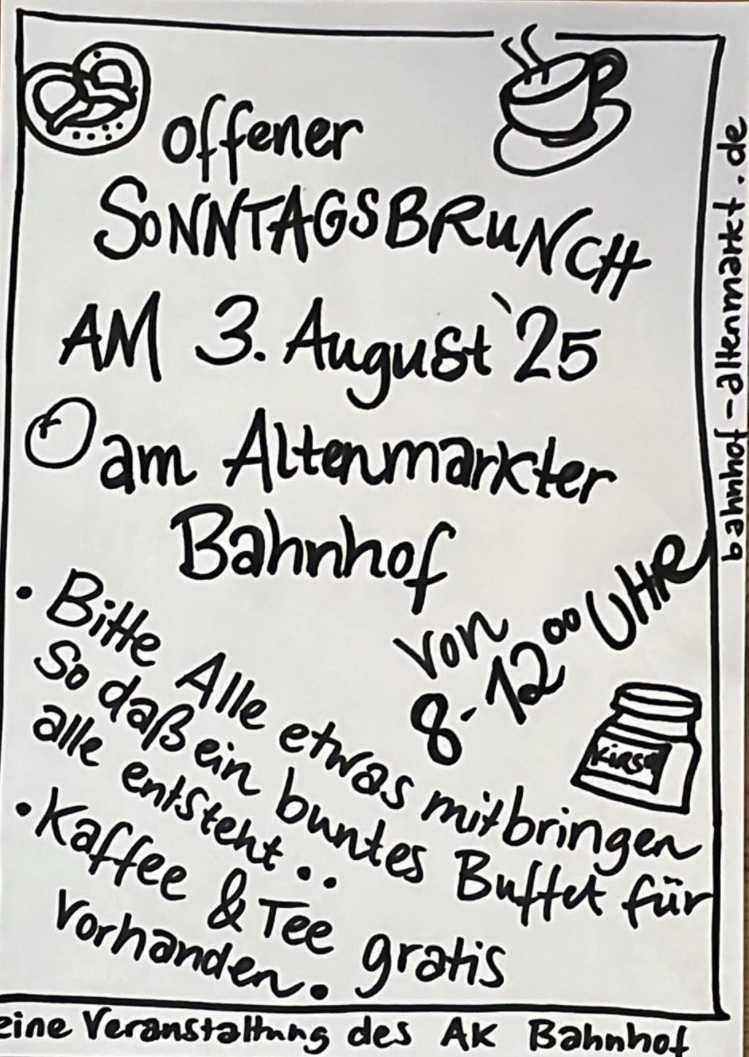 offener
SONNTAGSBRUNCH
AM 3. August '25
am Altenmarkter
Bahnhof
von
8-12⁰⁰ UHR
• Bitte Alle etwas mitbringen
So daß ein buntes Buffet für
alle entsteht..
• Kaffee & Tee gratis
vorhanden.
Kirsch
bahnhof-altenmarkt.de
eine Veranstaltung des AK Bahnhof